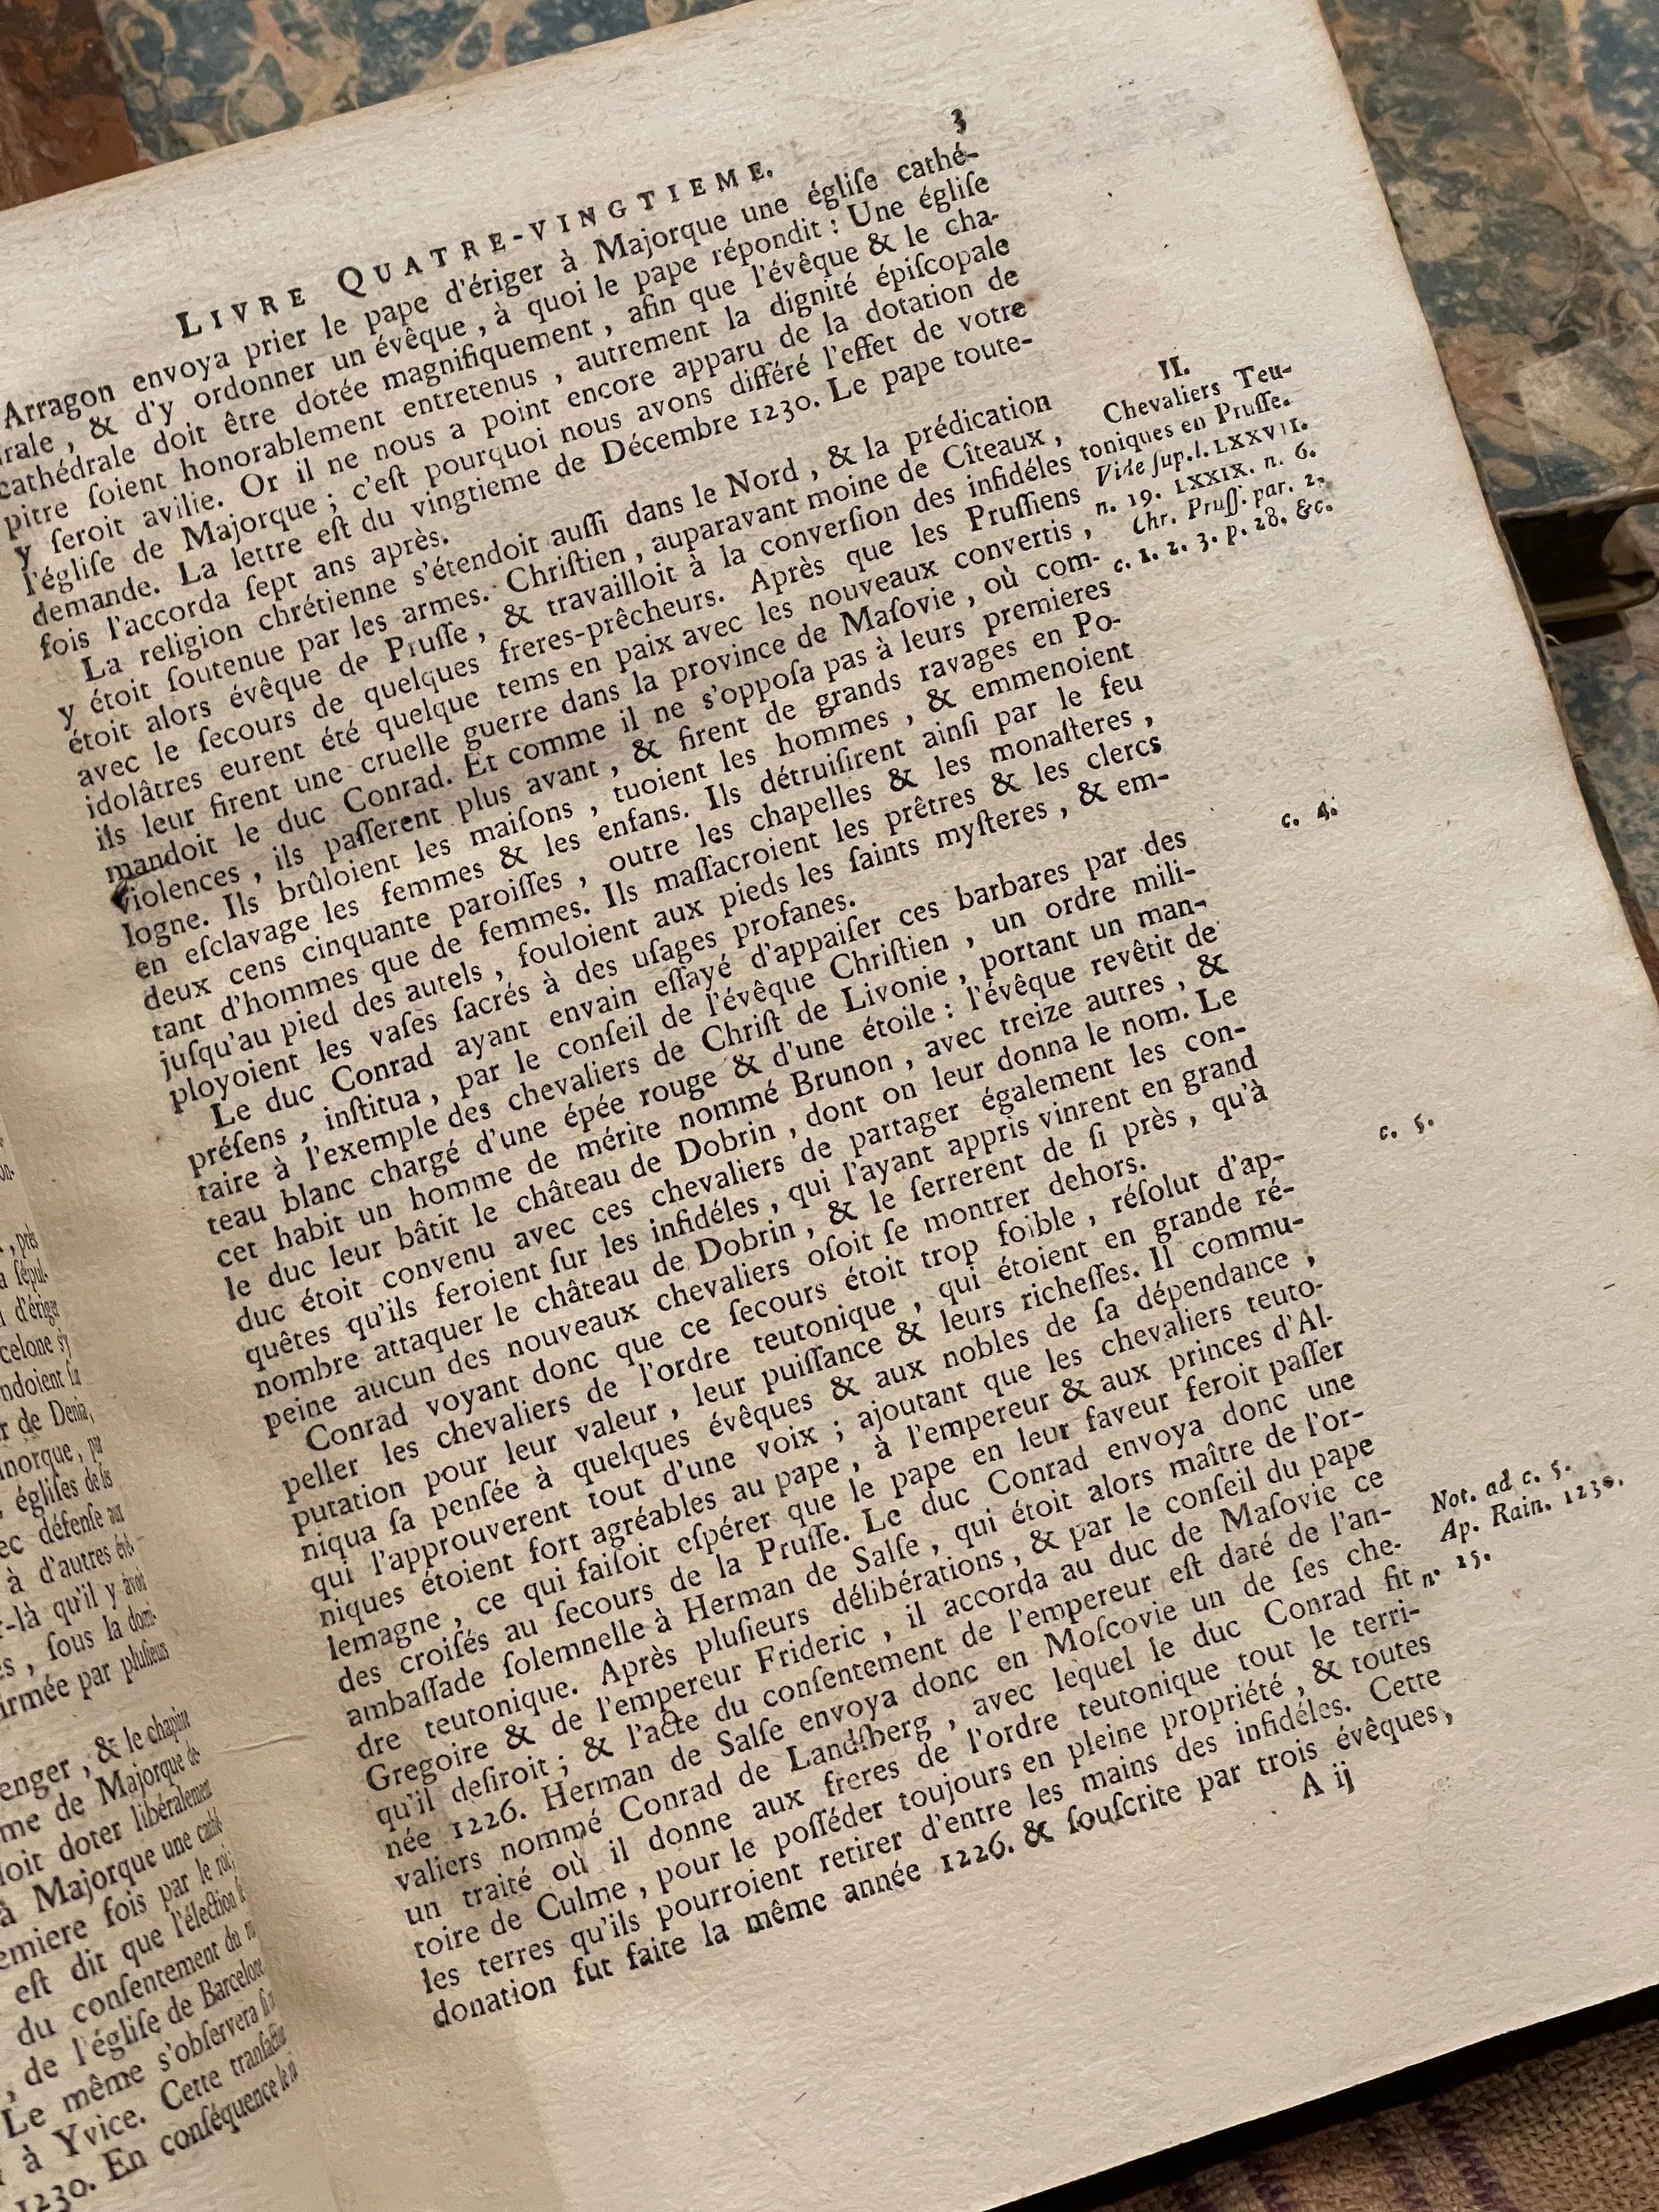 , près
a ſépul-
d'ériger
celone s'y
ndoient ſur
r de Denia,
inorque, par
égliſes de ſes
ec défenſe aux
à d'autres évê-
r-là qu'il y avoit
es, ſous la domi-
irmée par pluſieurs
enger, & le chapitre
me de Majorque de-
loit doter libéralement
à Majorque une cathé-
emiere fois par le roi,
eſt dit que l'élection ſe
du conſentement du roi
, de l'égliſe de Barcelone
Le même s'obſervera
à Yvice. Cette tranſaction
1230. En conſéquence le
LIVRE QUATRE-VINGTIEME. 3
Arragon envoya prier le pape d'ériger à Majorque une égliſe cathé-
drale, & d'y ordonner un évêque, à quoi le pape répondit : Une égliſe
cathédrale doit être dotée magnifiquement, afin que l'évêque & le cha-
pitre ſoient honorablement entretenus, autrement la dignité épiſcopale
y ſeroit avilie. Or il ne nous a point encore apparu de la dotation de
l'égliſe de Majorque ; c'eſt pourquoi nous avons différé l'effet de votre
demande. La lettre eſt du vingtieme de Décembre 1230. Le pape toute-
fois l'accorda ſept ans après.
La religion chrétienne s'étendoit auſſi dans le Nord, & la prédication
y étoit ſoutenue par les armes. Chriſtien, auparavant moine de Cîteaux,
étoit alors évêque de Pruſſe, & travailloit à la converſion des infidéles
avec le ſecours de quelques freres-prêcheurs. Après que les Pruſſiens
idolâtres eurent été quelque tems en paix avec les nouveaux convertis,
ils leur firent une cruelle guerre dans la province de Maſovie, où com-
mandoit le duc Conrad. Et comme il ne s'oppoſa pas à leurs premieres
violences, ils paſſerent plus avant, & firent de grands ravages en Po-
logne. Ils brûloient les maiſons, tuoient les hommes, & emmenoient
en eſclavage les femmes & les enfans. Ils détruiſirent ainſi par le feu
deux cens cinquante paroiſſes, outre les chapelles & les monaſteres,
tant d'hommes que de femmes. Ils maſſacroient les prêtres & les clercs
juſqu'au pied des autels, fouloient aux pieds les ſaints myſteres, & em-
ployoient les vaſes ſacrés à des uſages profanes.
Le duc Conrad ayant envain eſſayé d'appaiſer ces barbares par des
préſens, inſtitua, par le conſeil de l'évêque Chriſtien, un ordre mili-
taire à l'exemple des chevaliers de Chriſt de Livonie, portant un man-
teau blanc chargé d'une épée rouge & d'une étoile : l'évêque revêtit de
cet habit un homme de mérite nommé Brunon, avec treize autres, &
le duc leur bâtit le château de Dobrin, dont on leur donna le nom. Le
duc étoit convenu avec ces chevaliers de partager également les con-
quêtes qu'ils feroient ſur les infidéles, qui l'ayant appris vinrent en grand
nombre attaquer le château de Dobrin, & le ſerrerent de ſi près, qu'à
peine aucun des nouveaux chevaliers oſoit ſe montrer dehors.
Conrad voyant donc que ce ſecours étoit trop foible, réſolut d'ap-
peller les chevaliers de l'ordre teutonique, qui étoient en grande ré-
putation pour leur valeur, leur puiſſance & leurs richeſſes. Il commu-
niqua ſa penſée à quelques évêques & aux nobles de ſa dépendance,
qui l'approuverent tout d'une voix ; ajoutant que les chevaliers teuto-
niques étoient fort agréables au pape, à l'empereur & aux princes d'Al-
lemagne, ce qui faiſoit eſpérer que le pape en leur faveur feroit paſſer
des croiſés au ſecours de la Pruſſe. Le duc Conrad envoya donc une
ambaſſade ſolemnelle à Herman de Salſe, qui étoit alors maître de l'or-
dre teutonique. Après pluſieurs délibérations, & par le conſeil du pape
Gregoire & de l'empereur Frideric, il accorda au duc de Maſovie ce
qu'il deſiroit ; & l'acte du conſentement de l'empereur eſt daté de l'an-
née 1226. Herman de Salſe envoya donc en Moſcovie un de ſes che-
valiers nommé Conrad de Landſberg, avec lequel le duc Conrad fit
un traité où il donne aux freres de l'ordre teutonique tout le terri-
toire de Culme, pour le poſſéder toujours en pleine propriété, & toutes
les terres qu'ils pourroient retirer d'entre les mains des infidéles. Cette
donation fut faite la même année 1226. & ſouſcrite par trois évêques,
A ij
II.
Chevaliers Teu-
toniques en Pruſſe.
Vide ſup. l. LXXVII.
n. 19. LXXIX. n. 6.
Chr. Pruſſ. par. 2.
c. 1. 2. 3. p. 28. &c.
c. 4.
c. 5.
Not. ad c. 5.
Ap. Rain. 1230.
n. 15.